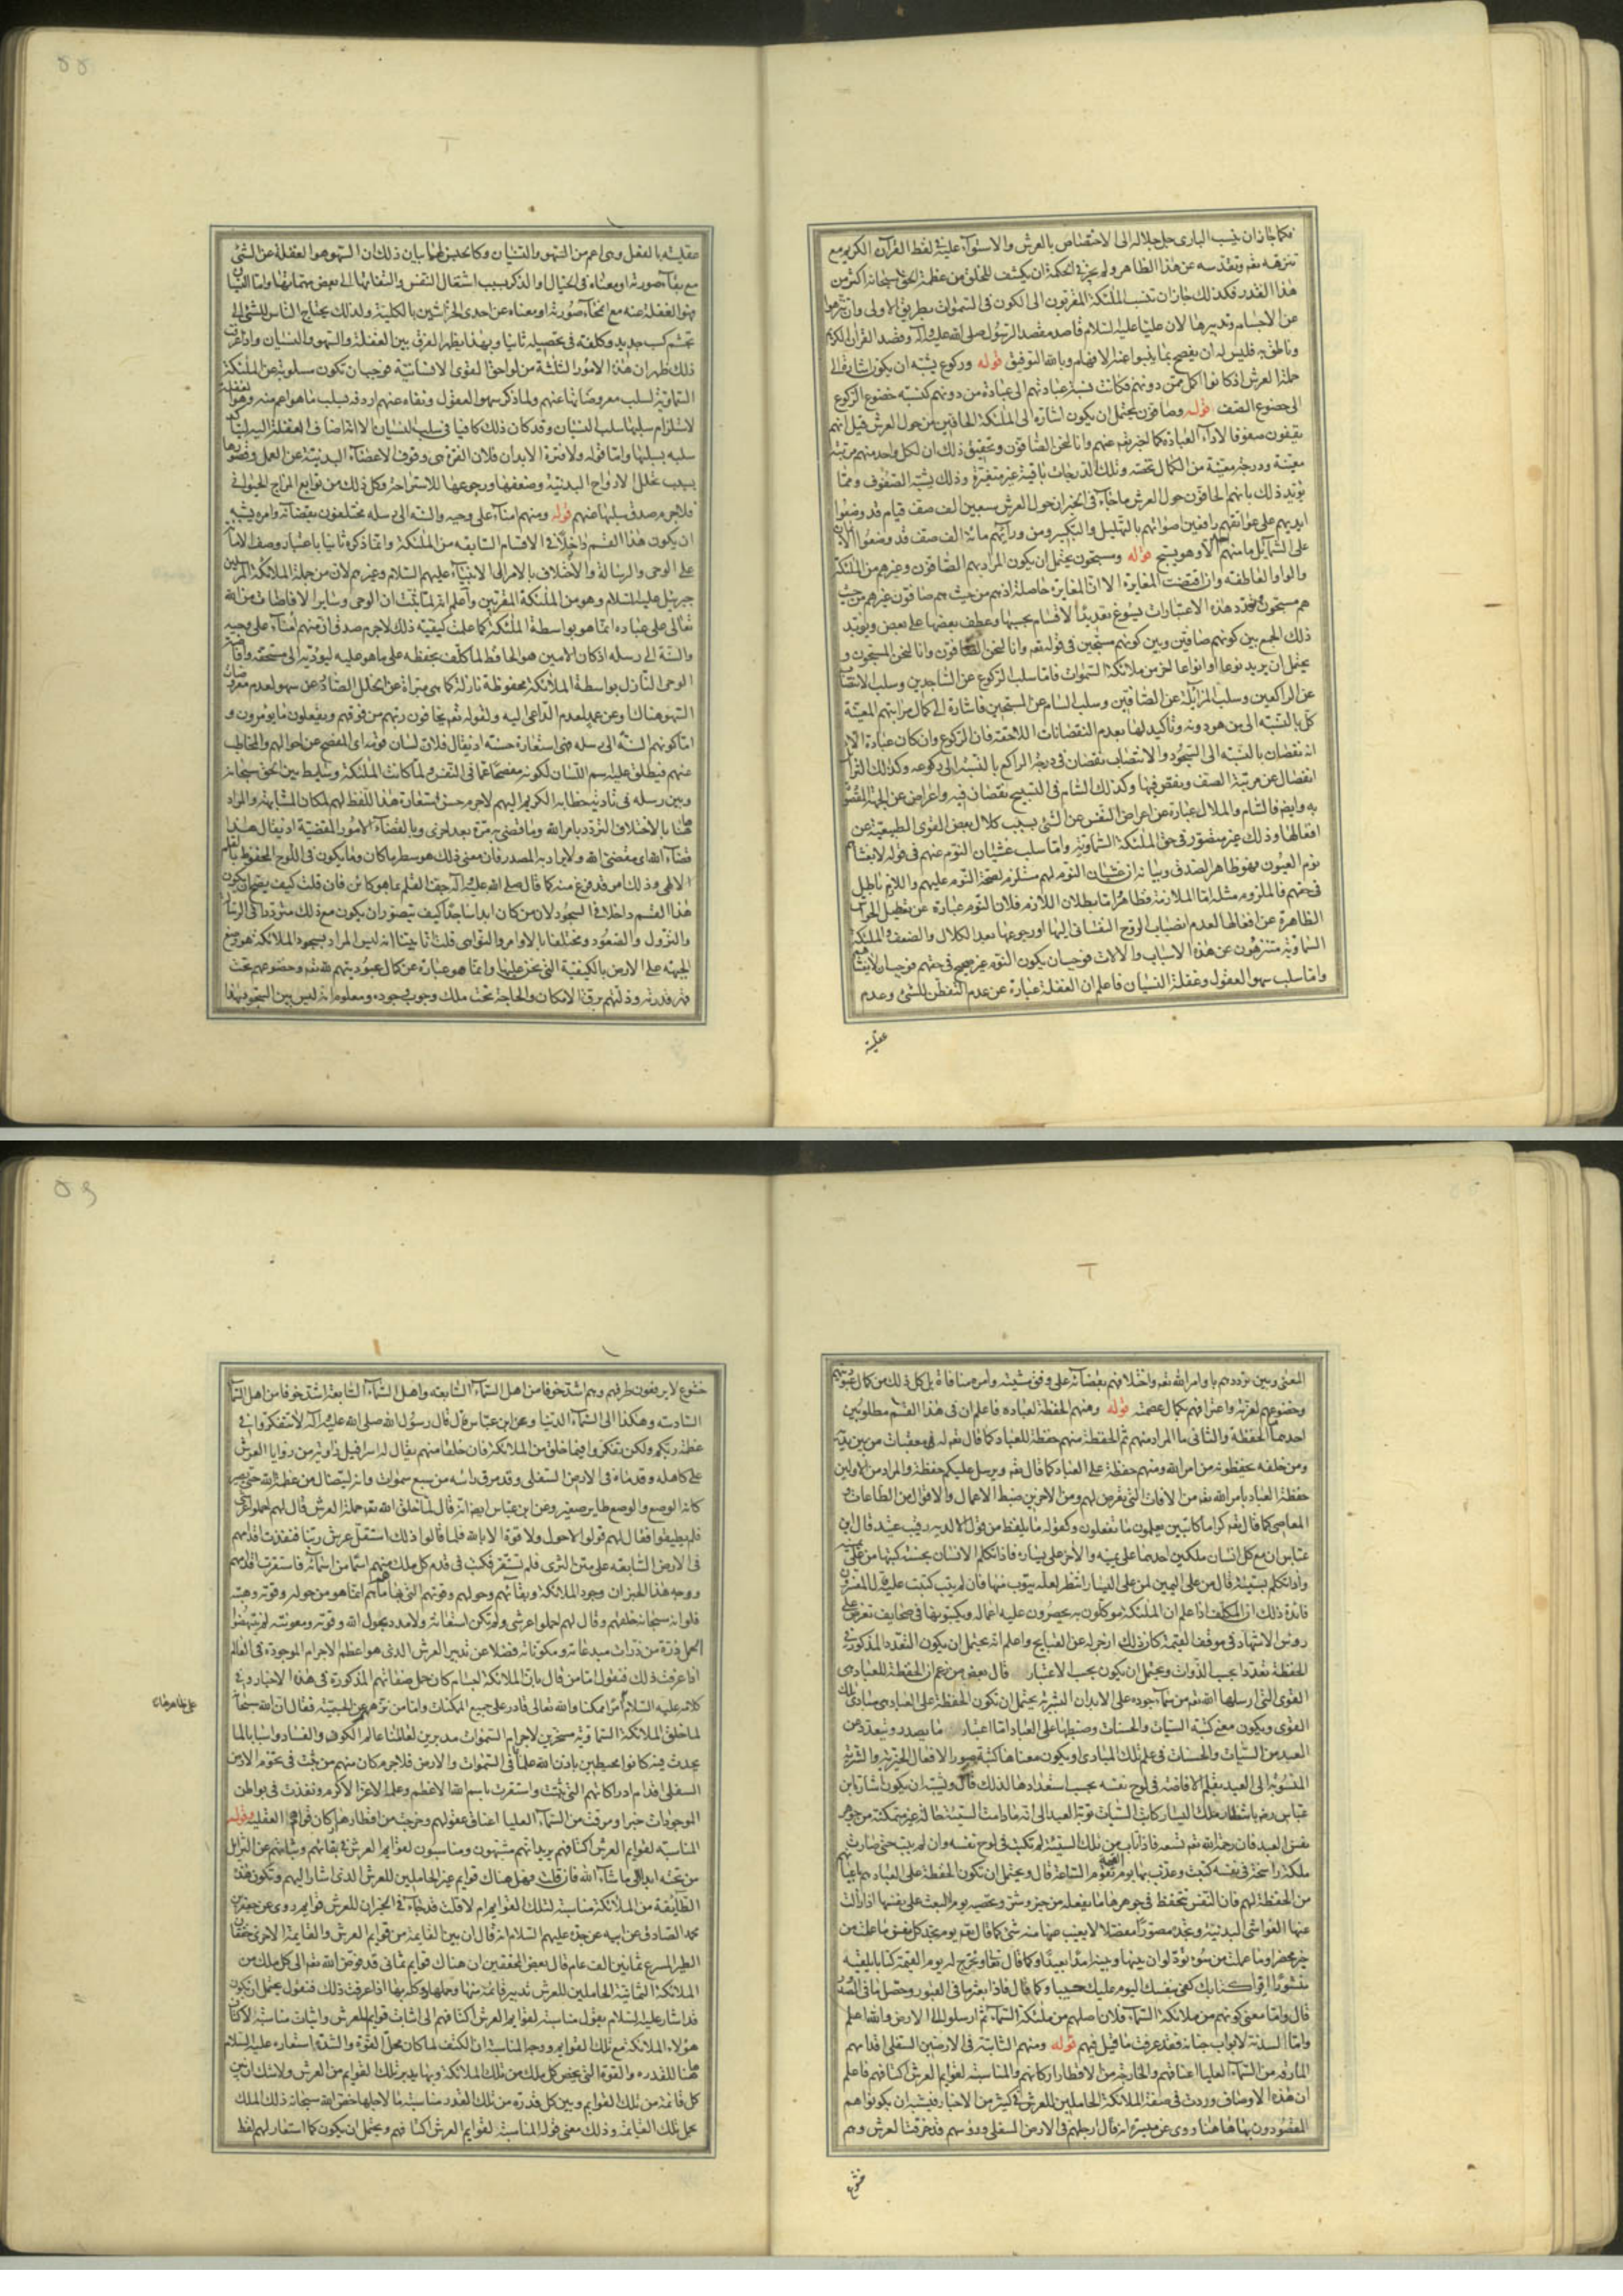 فكما جاز ان ينسب البارى جل جلاله الى الاختصاص بالعرش والاستوآء عليه فى لفظ القرآن الكريم مع
تنزهه تعم وتقدسه عن هذا الظاهر ولم يجز فى الحكمة ان يكشف للخلق من عظمة الحق سبحانه اكثر من
هذا القدر فكذلك جاز ان تنسب الملئكة المقربون الى الكون فى السموات بطريق الاولى وان تنزهوا
عن الاجسام وتدبيرها لان عليا عليه لسلام قاصد مقصد الرسول صلى الله عليه وآله وقصد القرآن الكريم
وناطق به فليس له ان يفصح بما ينبوا عنه الافهام وبالله التوفيق قوله وركوع يشبه ان يكون اشارة الى
حملة العرش اذ كانوا اكمل ممن دونهم فكانت نسبة عبادتهم الى عبادة من دونهم كنسبة خضوع الركوع
الى خضوع الصف قوله وصافون يحتمل ان يكون اشارة الى الملئكة الحافين من حول العرش قيل انهم
يقفون صفوفا لاداء العبادة كما اخبر تعم عنهم وانا لنحن الصافون وتحقيق ذلك ان لكل واحد منهم مرتبة
معينة ودرجة معينة من الكمال تخصه وتلك الدرجات باقية غير متغيرة وذلك يشبه الصفوف ومما
يؤيد ذلك بانهم الحافون حول العرش ما جاء فى الخبر ان حول العرش سبعين الف صف قيام قد وضعوا
ايديهم على عواتقهم رافعين اصواتهم بالتهليل والتكبير ومن ورآئهم مائة الف صف قد وضعوا الايمان
على الشمآئل ما منهم احد الا وهو يسبح قوله ومسبحون يحتمل ان يكون المراد بهم الصافون وغيرهم من الملئكة
والواو العاطفة وان اقتضت المغايرة الا ان المغايرة حاصلة اذ هم من حيث هم صافون غيرهم من حيث
هم مسبحون وتعدد هذه الاعتبارات يسوغ تعديد الاقسام بحسبها وعطف بعضها على بعض ويؤيد
ذلك الجمع بين كونهم صافين وبين كونهم مسبحين فى قوله تعم وانا لنحن الصافون وانا لنحن المسبحون و
يحتمل ان يريد نوعا او انواعا اخر من ملائكة السموات فاما سلب الركوع عن الساجدين وسلب الانتصاب
عن الراكعين وسلب المزايلة عن الصافين وسلب السام عن المسبحين فاشارة الى كمال مراتبهم المعينة
كل بالنسبة الى من هو دونه وتاكيد لها بعدم النقصانات اللاحقة فان الركوع وان كان عبادة الا
انه نقصان بالنسبة الى السجود والانتصاب نقصان فى درجة الراكع بالنسبة الى ركوعه وكذلك التزايل
انفصال عن مرتبة الصف ونقص فيها وكذلك السام فى التسبيح نقصان فيه واعراض عن الجهة المقصودة
به وايضم فالسام والملال عبارة عن اعراض النفس عن الشى بسبب كلال بعض القوى الطبيعية عن
افعالها وذلك غير متصور فى حق الملئكة السماوية واما سلب غشيان النوم عنهم فى قوله لا يغشاهم
نوم العيون فهو ظاهر الصدق وبيانه ان غشيان النوم لهم مستلزم لصحة النوم عليهم واللازم باطل
فى حقهم فالملزوم مثله اما الملازمة فظاهرة اما بطلان اللازم فلان النوم عبارة عن تعطيل الحواس
الظاهرة عن افعالها لعدم انصباب الروح النفسانى اليها او رجوعها بعد الكلال والضعف والملئكة
السماوية متنزهون عن هذه الاسباب والالات فوجب ان يكون النوم غير صحيح فى حقهم فوجب ان لا يغشاهم
واما سلب سهو العقول وغفلة النسيان فاعلم ان الغفلة عبارة عن عدم التفطن للشى وعدم
عقليته
۵۵
عقليته بالفعل وهى اعم من السهو والنسيان وكالجنس لهما بيان ذلك ان السهو هو الغفلة عن الشى
مع بقآء صورته او معناه فى الخيال او الذكر بسبب اشتغال النفس والتفاتها الى بعض مهماتها واما النسيان
فهو الغفلة عنه مع انمحآء صورته او معناه عن احدى الخزانتين بالكلية ولذلك يحتاج الناس للشى الى
تجشم كسب جديد وكلفة فى تحصيله ثانيا وبهذا يظهر الفرق بين الغفلة والسهو والنسيان واذا عرفت
ذلك ظهر ان هذه الامور الثلثة من لواحق القوى الانسانية فوجب ان تكون مسلوبة عن الملئكة
السماوية لسلب معروضاتها عنهم ولما ذكر سهو العقول ونفاه عنهم اردفه بسلب ما هو اعم منه وهو الغفلة
لاستلزام سلبها سلب النسيان وقد كان ذلك كافيا فى سلب النسيان الا انه اضاف الغفلة اليه ليتاكد
سلبه بسلبها واما قوله ولا فترة الابدان فلان الفترة هى وقوف الاعضآء البدنية عن العمل وقصورها
بسبب تحلل الارواح البدنية وضعفها ورجوعها للاستراحة وكل ذلك من توابع المزاج الحيوانى
فلا جرم صدق سلبها عنهم قوله ومنهم امنآء على وحيه والسنة الى رسله مختلفون بقضآئه وامره يشبه
ان يكون هذا القسم داخلا فى الاقسام السابقه من الملئكة وانما ذكره ثانيا باعتبار وصف الامانة
على الوحى والرسالة والاختلاف بالامر الى الانبياء عليهم السلام وغيرهم لان من جملة الملائكة المرسلين
جبرئيل عليه السلام وهو من الملئكة المقربين واعلم انه لما ثبت ان الوحى وساير الافاضات من الله
تعالى على عباده انما هو بواسطة الملئكة كما علمت كيفية ذلك لا جرم صدق ان منهم امنآء على وحيه
والسنة الى رسله اذ كان الامين هو الحافظ لما كلف بحفظه على ما هو عليه ليؤديه الى مستحقه وافاضة
الوحى النازل بواسطة الملائكة محفوظة نازلة كما هى مبراة عن الخلل الصادر عن سهو لعدم معروض
السهو هناك وعن عمد لعدم الداعى اليه ولقوله تعم يخافون ربهم من فوقهم ويفعلون ما يؤمرون و
اما كونهم السنة الى رسله فهى استعارة حسنة اذ يقال فلان لسان قومه اى المفصح عن احوالهم والمخاطب
عنهم فيطلق عليه اسم اللسان لكونه مفصحا عما فى النفس ولما كانت الملئكة وسايط بين الحق سبحانه
وبين رسله فى تادية خطابه الكريم اليهم لا جرم حسن استعارة هذا اللفظ لهم لمكان المشابهة والمراد
ههنا بالاختلاف التردد بامر الله وما قضى به مرة بعد اخرى وبالقضآء الامور المقضية اذ يقال هذا
قضآء الله اى مقضى الله ولا يراد به المصدر فان معنى ذلك هو سطر ما كان وما يكون فى اللوح المحفوظ بالقلم
الالهى وذلك امر قد فرغ منه كما قال صلى الله عليه وآله جف القلم بما هو كائن فان قلت كيف يصح ان يكون
هذا القسم داخلا فى السجود لان من كان ابدا ساجدا كيف يتصور ان يكون مع ذلك مترددا فى الرسالة
والنزول والصعود ومختلفا بالاوامر والنواهى قلت انا بينا انه ليس المراد بسجود الملائكة هو وضع
الجبهة على الارض بالكيفية التى نحن عليها وانما هو عبارة عن كمال عبوديتهم لله تعم وخضوعهم تحت
قدرته وذلتهم برق الامكان والحاجة تحت ملك وجوب وجوده ومعلوم انه ليس بين السجود بهذا
المعنى وبين ترددهم باوامر الله تعم واختلافهم بقضآئه على وفق مشيته وامره منافاة بل كل ذلك من كمال عبوديتهم
وخضوعهم لعزته واعترافهم بكمال عظمته قوله ومنهم الحفظة لعباده فاعلم ان فى هذا القسم مطلوبين
احدهما الحفظة والثانى ما المراد منهم ثم الحفظة منهم حفظة للعباد كما قال تعم له معقبات من بين يديه
ومن خلفه يحفظونه من امر الله ومنهم حفظة على العباد كما قال تعم ويرسل عليكم حفظة والمراد من الاولين
حفظة العباد بامر الله تعم من الافات التى تعرض لهم ومن الاخرين ضبط الاعمال والاقوال من الطاعات و
المعاصى كما قال تعم كراما كاتبين يعلمون ما تفعلون وكقوله ما يلفظ من قول الا لديه رقيب عتيد قال ابن
عباس ان مع كل انسان ملكين احدهما على يمينه والاخر على يساره فاذا تكلم الانسان بحسنة كتبها من على يمينه
واذا تكلم بسيئة قال من على اليمين لمن على اليسار انتظر لعله يتوب منها فان لم يتب كتبت عليه قال المفسرون
فائدة ذلك ان المكلف اذا علم ان الملئكة موكلون به يحصرون عليه اعماله ويكتبونها فى صحايف تعرض على
روس الاشهاد فى موقف القيمة كان ذلك ازجر له عن القبايح واعلم انه يحتمل ان يكون التعدد المذكور فى
الحفظة تعددا بحسب الذوات ويحتمل ان يكون بحسب الاعتبار قال بعض من زعم ان الحفظة للعباد هى
القوى التى ارسلها الله تعم من سمآء جوده على الابدان البشرية يحتمل ان تكون الحفظة على العباد هى مبادى تلك
القوى ويكون معنى كتبة السيات والحسنات وضبطها على العباد اما اعتبار ما يصدر ويتعدد عن
العبد من السيات والحسنات فى علم تلك المبادى او يكون معناها كتبة صور الافعال الخيرية والشرية
المنسوبة الى العبد بقلم الافاضة فى لوح نفسه بحسب استعدادها لذلك قال ويشبه ان يكون اشارة ابن
عباس رض بانتظار ملك اليسار كاتب السيات توبة العبد الى انه ما دامت السيئة حالة غير متمكنة من جوهر
نفس العبد فان رحمة الله تعم تسعه فاذا تاب من تلك السيئة لم تكتب فى لوح نفسه وان لم يتب حتى صارت
ملكة راسخة فى نفسه كتبت وعذب بها يوم تقوم الساعة قال ويحتمل ان تكون الحفظة على العباد هم باعيانهم
من الحفظة لهم فان النفس تحفظ فى جوهرها ما يفعله من خير وشر وتحصيه يوم البعث على نفسها اذا زالت
عنها الغواشى البدنية وتجده مصورا مفصلا لا يغيب عنها منه شى كما قال تعم يوم تجد كل نفس ما عملت من
خير محضرا وما عملت من سوء تود لو ان بينها وبينه امدا بعيدا وكما قال تعم ونخرج له يوم القيمة كتابا يلقيه
منشورا اقرا كتابك كفى بنفسك اليوم عليك حسيبا وكما قال فاذا بعثر ما فى القبور وحصل ما فى الصدور
قال واما معنى كونهم من ملائكة السمآء فلان اصلهم من ملئكة السمآء ثم ارسلوا الى الارض والله اعلم
واما السدنة لابواب جنانه فقد عرفت ما قيل فيهم قوله ومنهم الثابتة فى الارضين السفلى اقدامهم
المارقة من السمآء العليا اعناقهم والخارجة من الاقطار اركانهم والمناسبة لقوايم العرش اكتافهم فاعلم
ان هذه الاوصاف وردت فى صفة الملائكة الحاملين للعرش فى كثير من الاخبار فيشبه ان يكونوا هم
المقصودون بها هاهنا روى عن ميسرة انه قال ارجلهم فى الارض السفلى ورؤسهم قد خرقت العرش وهم
خشوع
۵۶
خشوع لا يرفعون طرفهم وهم اشد خوفا من اهل السمآء السابعة واهل السمآء السابعة اشد خوفا من اهل السمآء
السادسة وهكذا الى السمآء الدنيا وعن ابن عباس رض قال قال رسول الله صلى الله عليه وآله لا تتفكروا فى
عظمة ربكم ولكن تفكروا فيما خلق من الملائكة فان خلقا منهم يقال له اسرافيل زاوية من زوايا العرش
على كاهله وقدماه فى الارض السفلى وقد مرق راسه من سبع سموات وانه ليتضائل من عظمة الله حتى يصير
كانه الوصع والوصع طاير صغير وعن ابن عباس ايضا انه قال لما خلق الله تعم حملة العرش قال لهم احملوا عرشى
فلم يطيقوا فقال لهم قولوا لا حول ولا قوة الا بالله فلما قالوا ذلك استقل عرش ربنا فنفذت اقدامهم
فى الارض السابعة على متن الثرى فلم تستقر فكتب فى قدم كل ملك منهم اسما من اسمآئه فاستقرت اقدامهم
ووجه هذا الخبر ان وجود الملائكة وبقآئهم وحولهم وقوتهم التى بها ما هم انما هو من حوله وقوته وهيبته
فلو انه سبحانه خلقهم وقال لهم احملوا عرشى ولم تكن استعانة ولا مدد بحول الله وقوته ومعونته لم ينتهضوا
بحمل ذرة من ذرات مبدعاته ومكوناته فضلا عن تدبير العرش الذى هو اعظم الاجرام الموجودة فى العالم
اذا عرفت ذلك فنقول اما من قال بان الملائكة اجسام كان حمل صفاتهم المذكورة فى هذه الاخبار وفى
كلامه عليه السلام امرا ممكنا والله تعالى قادر على جميع الممكنات واما من نزههم عن الجسمية فقال ان الله سبحانه
على ظاهرها
لما خلق الملائكة السماوية مسخرين لاجرام السموات مدبرين لعالمنا عالم الكون والفساد واسبابا لما
يحدث فيه كانوا محيطين باذن الله علما فى السموات والارض فلا جرم كان منهم من ثبتت فى تخوم الارض
السفلى اقدام ادراكاتهم التى ثبتت واستقرت باسم الله الاعظم وعلمه الاعز الاكرم ونفذت فى بواطن
الموجودات خبرا ومرقت من السمآء العليا اعناق عقولهم وخرجت من اقطارها اركان قواهم العقلية قوله
المناسبة لقوايم العرش اكتافهم يريد انهم مشبهون ومناسبون لقوايم العرش فى بقائهم وثباتهم عن التزايل
من تحته ابدا الى ما شآء الله فان قلت فهل هناك قوايم غير الحاملين للعرش الذى اشار اليهم وتكون هذه
الطآئفة من الملائكة مناسبة لتلك القوايم ام لا قلت قد جآء فى الخبر ان للعرش قوايم روى عن جعفر بن
محمد الصادق عن ابيه عن جده عليهم السلام انه قال ان بين القايمة من قوايم العرش والقايمة الاخرى خفقان
الطير المسرع ثمانين الف عام قال بعض المحققين ان هناك قوايم ثمانى قد فوض الله تعم الى كل ملك من
الملائكة الثمانية الحاملين للعرش تدبير قائمة منها وحملها ووكله بها اذا عرفت ذلك فنقول يحتمل ان يكون
قد اشار عليه السلام بقوله مناسبة لقوايم العرش اكتافهم الى اثبات قوايم للعرش واثبات مناسبة الاكتاف
هؤلاء الملائكة مع تلك القوايم ووجه المناسبة ان الكتف لما كان محل القوة والشدة استعاره عليه السلام
ههنا للقدرة والقوة التى يخص كل ملك من تلك الملائكة وبها يدبر تلك القوايم من العرش ولا شك ان بين
كل قائمة من تلك القوايم وبين كل قدرة من تلك القدر مناسبة ما لاجلها خص الله سبحانه ذلك الملك
بحمل تلك القايمة وذلك معنى قوله المناسبة لقوايم العرش اكتافهم ويحتمل ان يكون كما استعار لهم لفظ